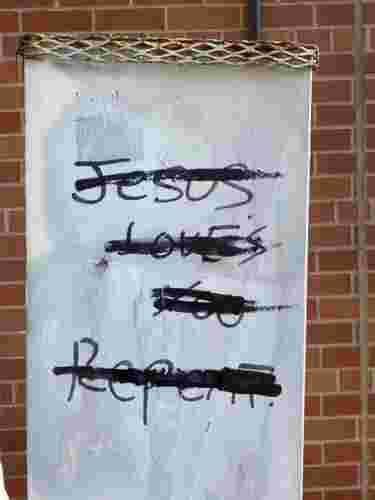 Jesus
LOVES
You
Repent.